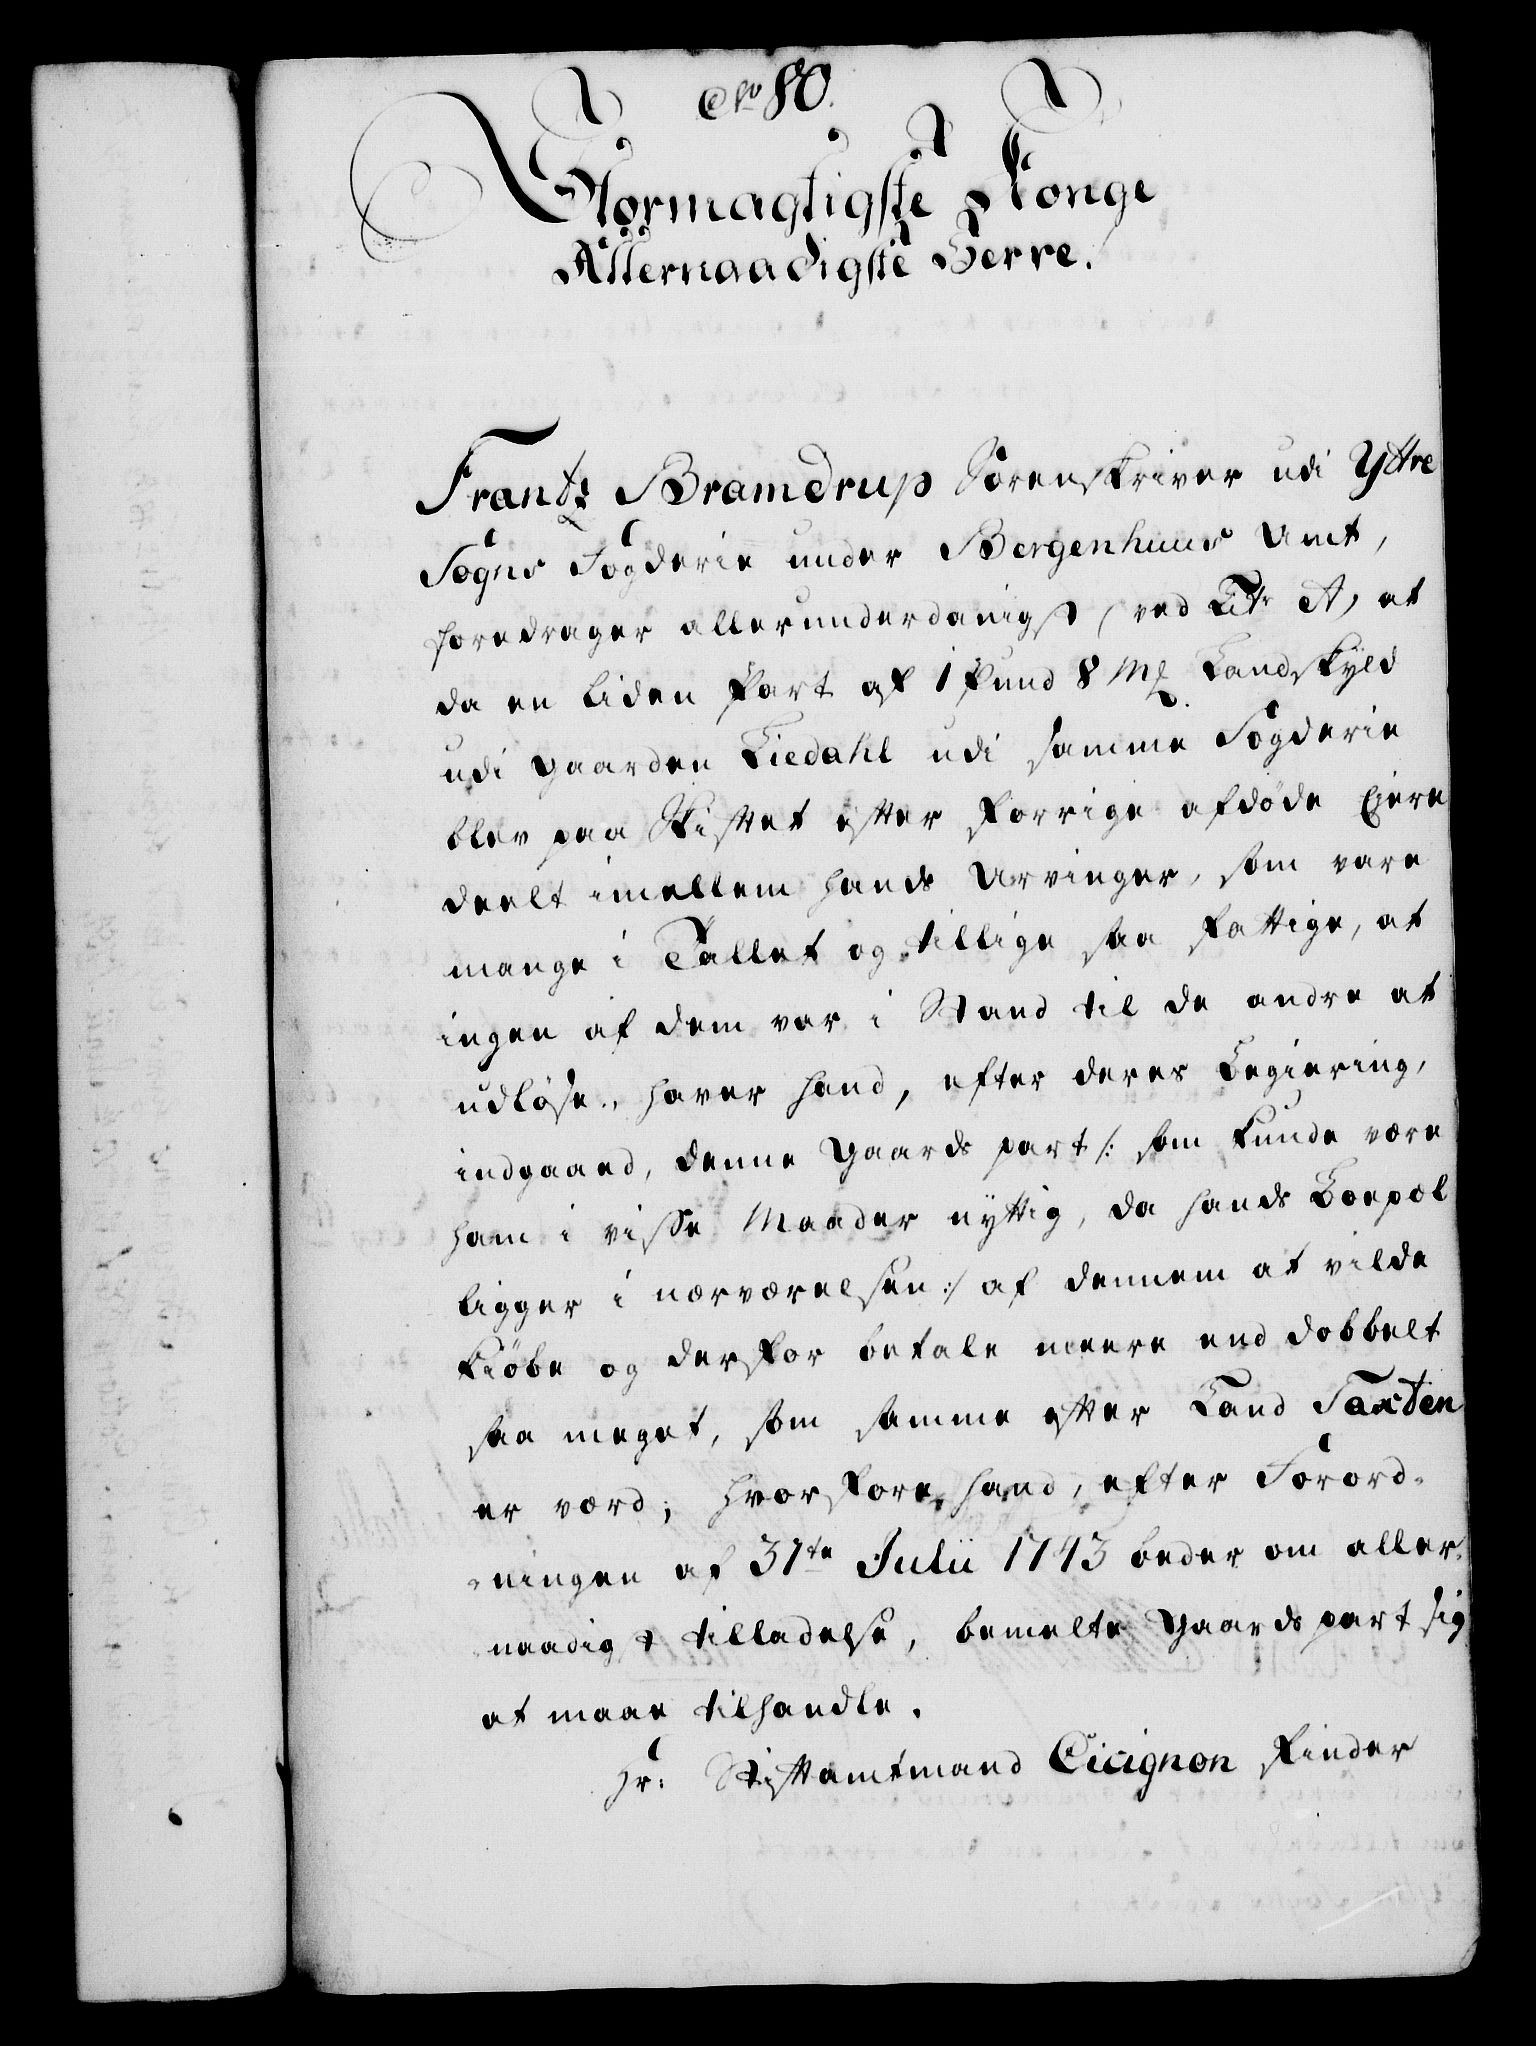 No 80.
Stormægtigste Konge
Allernaadigste Herre.
Frantz Bramdrup Sorenskriver udi Yttre
Sogns Fogderie under Bergenhuus Amt,
foredrager allerunderdanigst (ved Litr A, at
da en liden Part af 1 Pund 8 Mk Landskyld
udi Gaarden Liedahl udi samme Fogderie
blev paa Skiftet efter forrige afdøde Eiere
deelt imellem hands Arvinger, som vare
mange i Tallet og tillige saa fattige, at
ingen af dem var i Stand til de andre at
udløse, haver hand, efter deres Begiering,
indgaaed, denne Gaards part /: som kunde være
ham i visse Maader nyttig, da hands Boepæl
ligger i nærværelsen :/ af dennem at vilde
kiøbe og derfor betale meere end dobbelt
saa meget, som samme efter Land Taxten
er værd; hvorfore hand, efter Forord-
ningen af 31te Julii 1743 beder om aller-
naadigst tilladelse, bemelte Gaards part sig
at maae tilhandle.
Hr: Stiftamtmand Cicignon finder